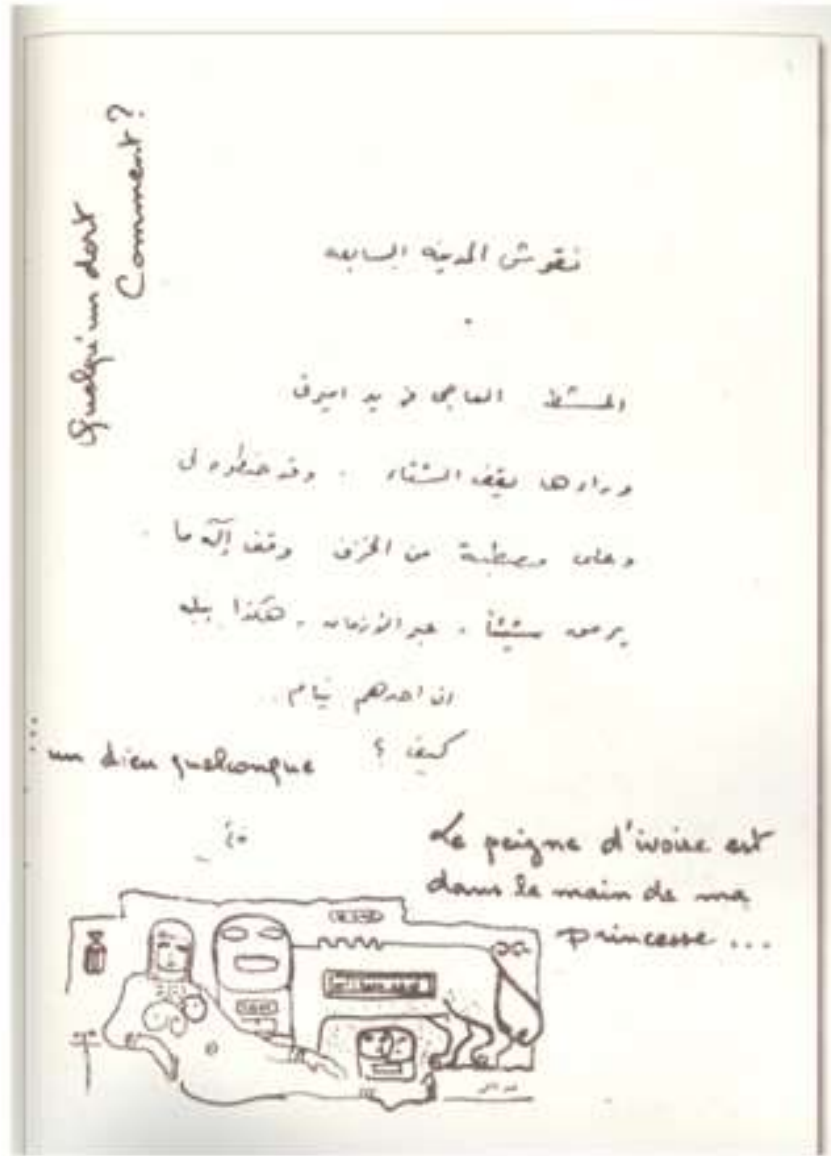 Quelqu'un dort
Comment?
نقوش المدينه السابعه
المشط العاجي في يد اميرتي
وراءها يقف الشتاء .. وقد
وعلى مصطبة من الخزف وقف إله ما .
يرمق شيئاً . عبر الازمان . هكذا
ان احدهم نيام ..
كيف ؟
... un dieu quelconque
Le peigne d'ivoire est
dans la main de ma
princesse ...